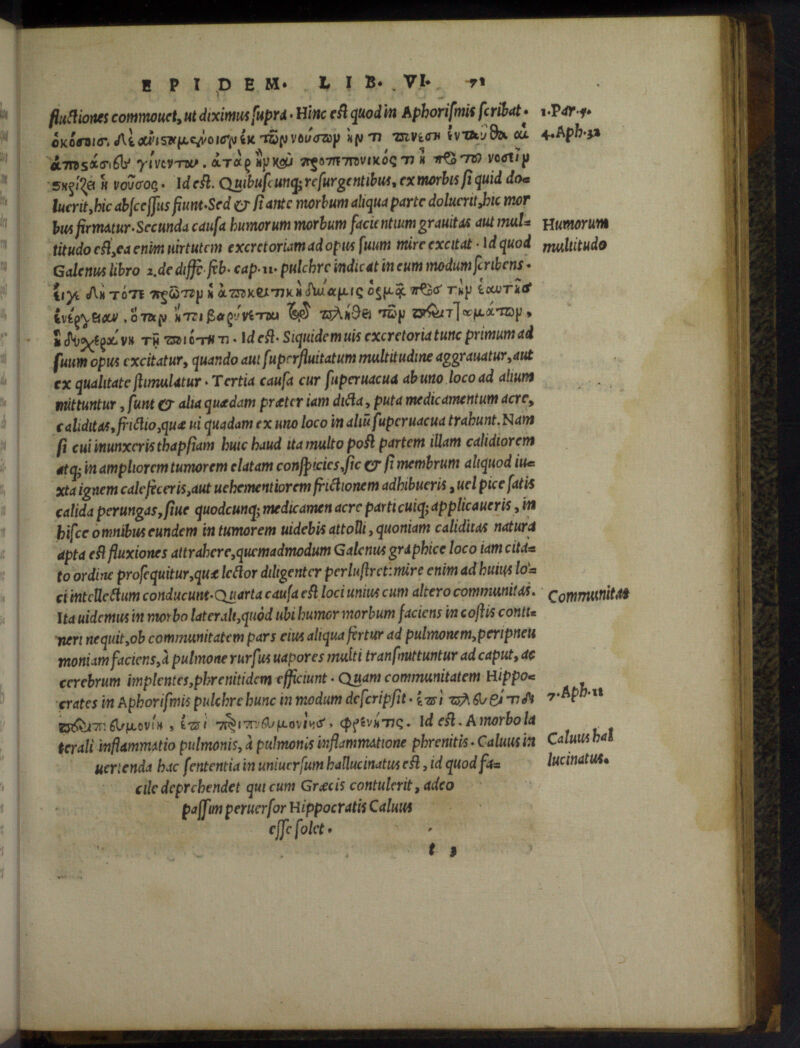 EPIDEM. LIB. VI. 71
fluctiones commouet, ut diximus supra. Hinc est quod in Aphorismis scribit. 1.Par.4.
ὁκόσοισι δὲ ἀνισταμένοισιν ἐκ τῶν νούσων ἤν τι πονέσῃ ἐνταῦθα αἱ 4.Aph.32
ἀποστάσιες γίνονται. ἀτὰρ ἢν καὶ προπεπονικός τι ᾖ πρὸ τοῦ νοσεῖν
στηρίζει ἡ νοῦσος. Id est. Quibuscunq; resurgentibus, ex morbis si quid do=
luerit, hic abscessus fiunt. Sed & si ante morbum aliqua parte doluerit, hic mor
bus firmatur. Secunda causa humorum morbum facientium grauitas aut mul= Humorum
titudo est, ea enim uirtutem excretoriam ad opus suum mire excitat. Id quod multitudo
Galenus libro 2. de diffe. feb. cap. 11. pulchre indicat in eum modum scribens.
εἴγε δὴ τότε πρῶτον ἡ ἀποκριτικὴ δύναμις ὁρμᾷ πρὸς τὴν ἑαυτῆς
ἐνέργειαν, ὅταν ἤτοι βαρύνηται τῷ πλήθει τῶν περιττωμάτων,
ἢ δυσχεραίνῃ τῇ ποιότητι. Id est. Siquidem uis excretoria tunc primum ad
suum opus excitatur, quando aut superfluitatum multitudine aggrauatur, aut
ex qualitate stimulatur. Tertia causa cur superuacua ab uno loco ad alium
mittuntur, sunt & alia quædam præter iam dicta, puta medicamentum acre,
caliditas, frictio, quæ ui quadam ex uno loco in aliũ superuacua trahunt. Nam
si cui inunxeris thapsiam huic haud ita multo post partem illam calidiorem
atq; in ampliorem tumorem elatam conspicies, sic & si membrum aliquod iu=
xta ignem calefeceris, aut uehementiorem frictionem adhibueris, uel pice satis
calida perungas, siue quodcunq; medicamen acre parti cuiq; applicaueris, in
hisce omnibus eundem in tumorem uidebis attolli, quoniam caliditas natura
apta est fluxiones attrahere, quemadmodum Galenus graphice loco iam cita=
to ordine prosequitur, quæ lector diligenter perlustret: mire enim ad huius lo=
ci intellectum conducunt. Quarta causa est loci unius cum altero communitas. Communitas
Ita uidemus in morbo laterali, quòd ubi humor morbum faciens in costis conti=
neri nequit, ob communitatem pars eius aliqua fertur ad pulmonem, peripneu
moniam faciens, à pulmone rursus uapores multi transmittuntur ad caput, ac
cerebrum implentes, phrenitidem efficiunt. Quam communitatem Hippo=
crates in Aphorismis pulchre hunc in modum descripsit. ἐπὶ πλευρίτιδι 7.Aph.11
περιπνευμονίη, ἐπὶ περιπνευμονίης, φρενῖτις. Id est. A morbo la
terali inflammatio pulmonis, à pulmonis inflammatione phrenitis. Caluus in Caluus hal
uertenda hac sententia in uniuersum hallucinatus est, id quod fa= lucinatus.
cile deprehendet qui cum Græcis contulerit, adeo
passim peruersor Hippocratis Caluus
esse solet.